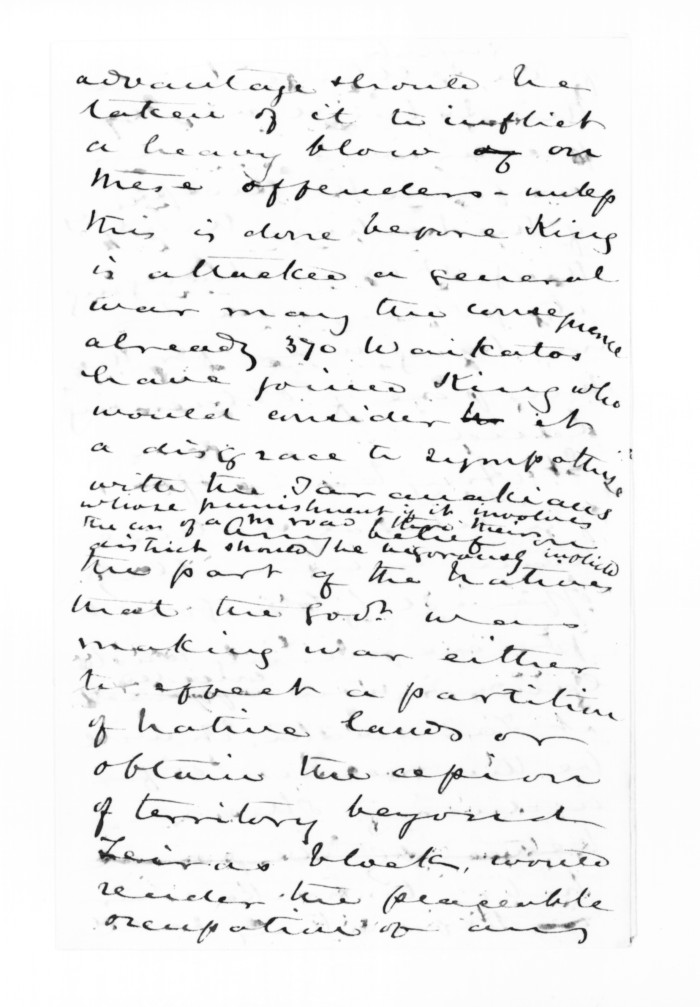 advantage should be
taken of it to inflict
a heavy blow of on
these offenders - unless
this is done before King
is attacked a general
war may the consequence
already 370 Waikatos
have joined King who
would consider it
a disgrace to sympathise
with the Taranakians
whose punishment if it involves
the of a road thro their own
district should be vigorously inflicted
Any belief on
the part of the Natives
that the Govt was
making war either
to effect a partition
of native lands or
obtain the cession
of territory beyond
Teiras block, would
render the peaceable
occupation of any